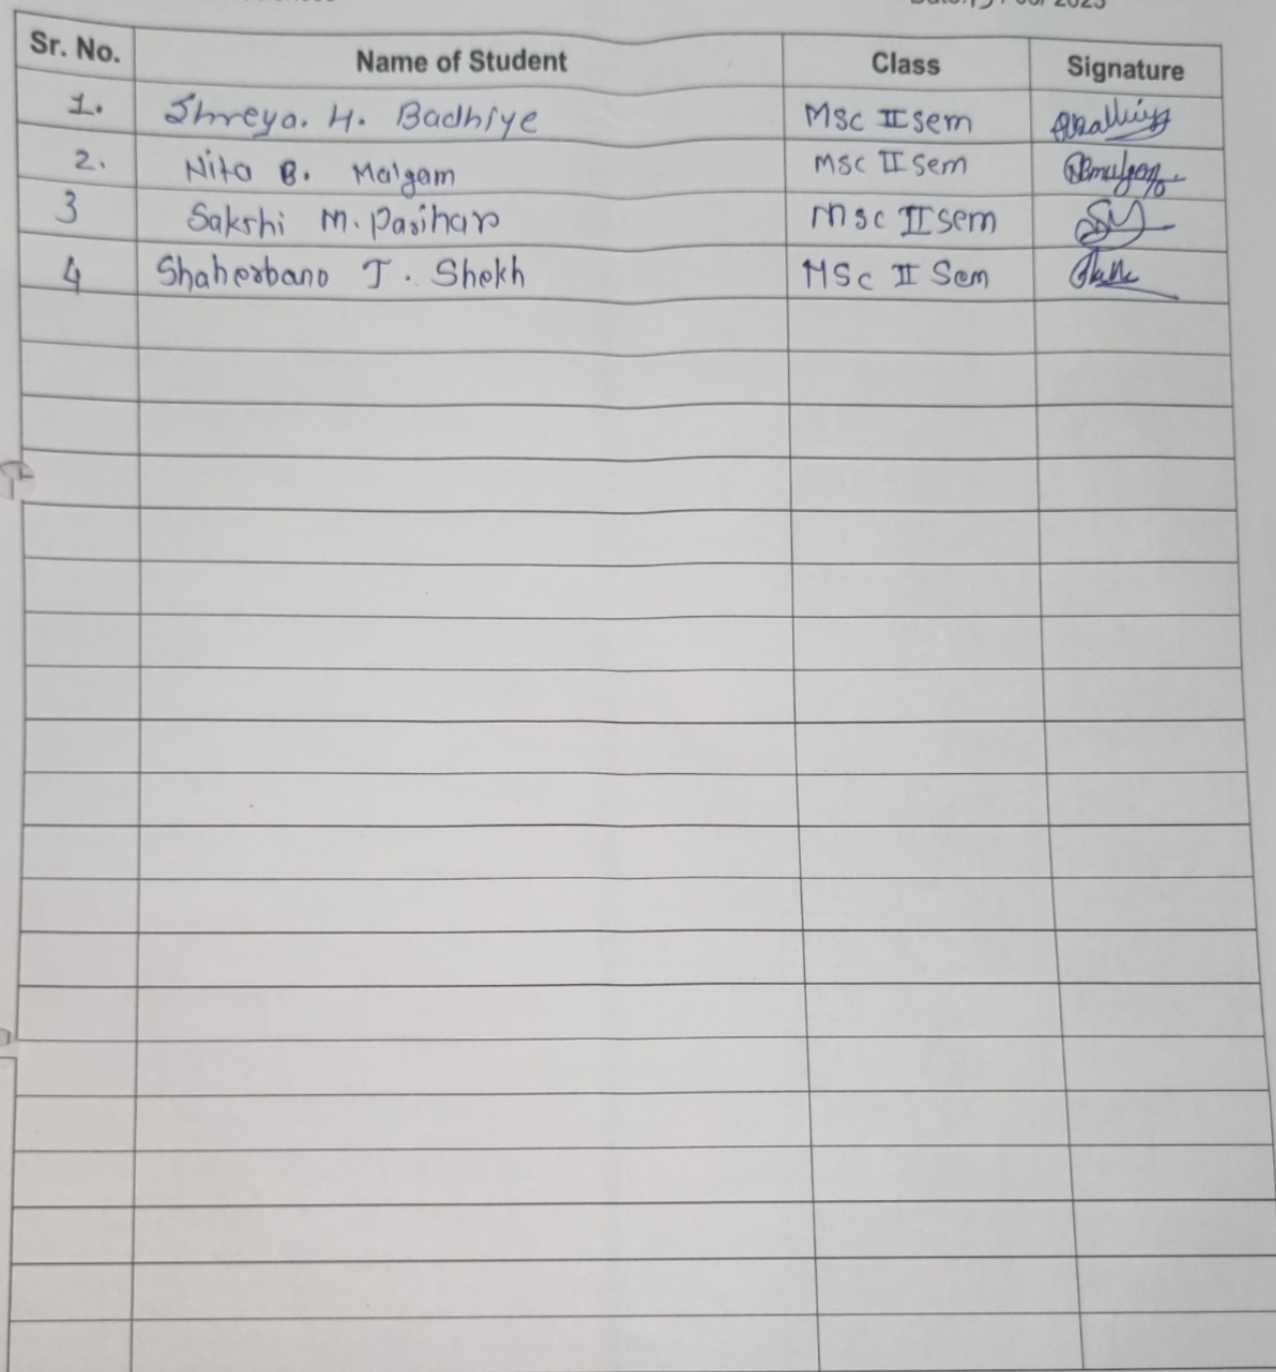 Sr. No. Name of Student Class Signature
1. Shreya. H. Badhiye MSc II sem
2. Nita B. Malgam MSC II Sem
3 Sakshi M. Parihar MSC II sem
4 Shaherbano J. Shekh MSc II Sem